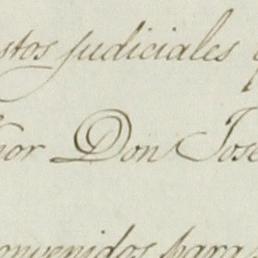 stos judiciales
ñor Don José
onvenidos para